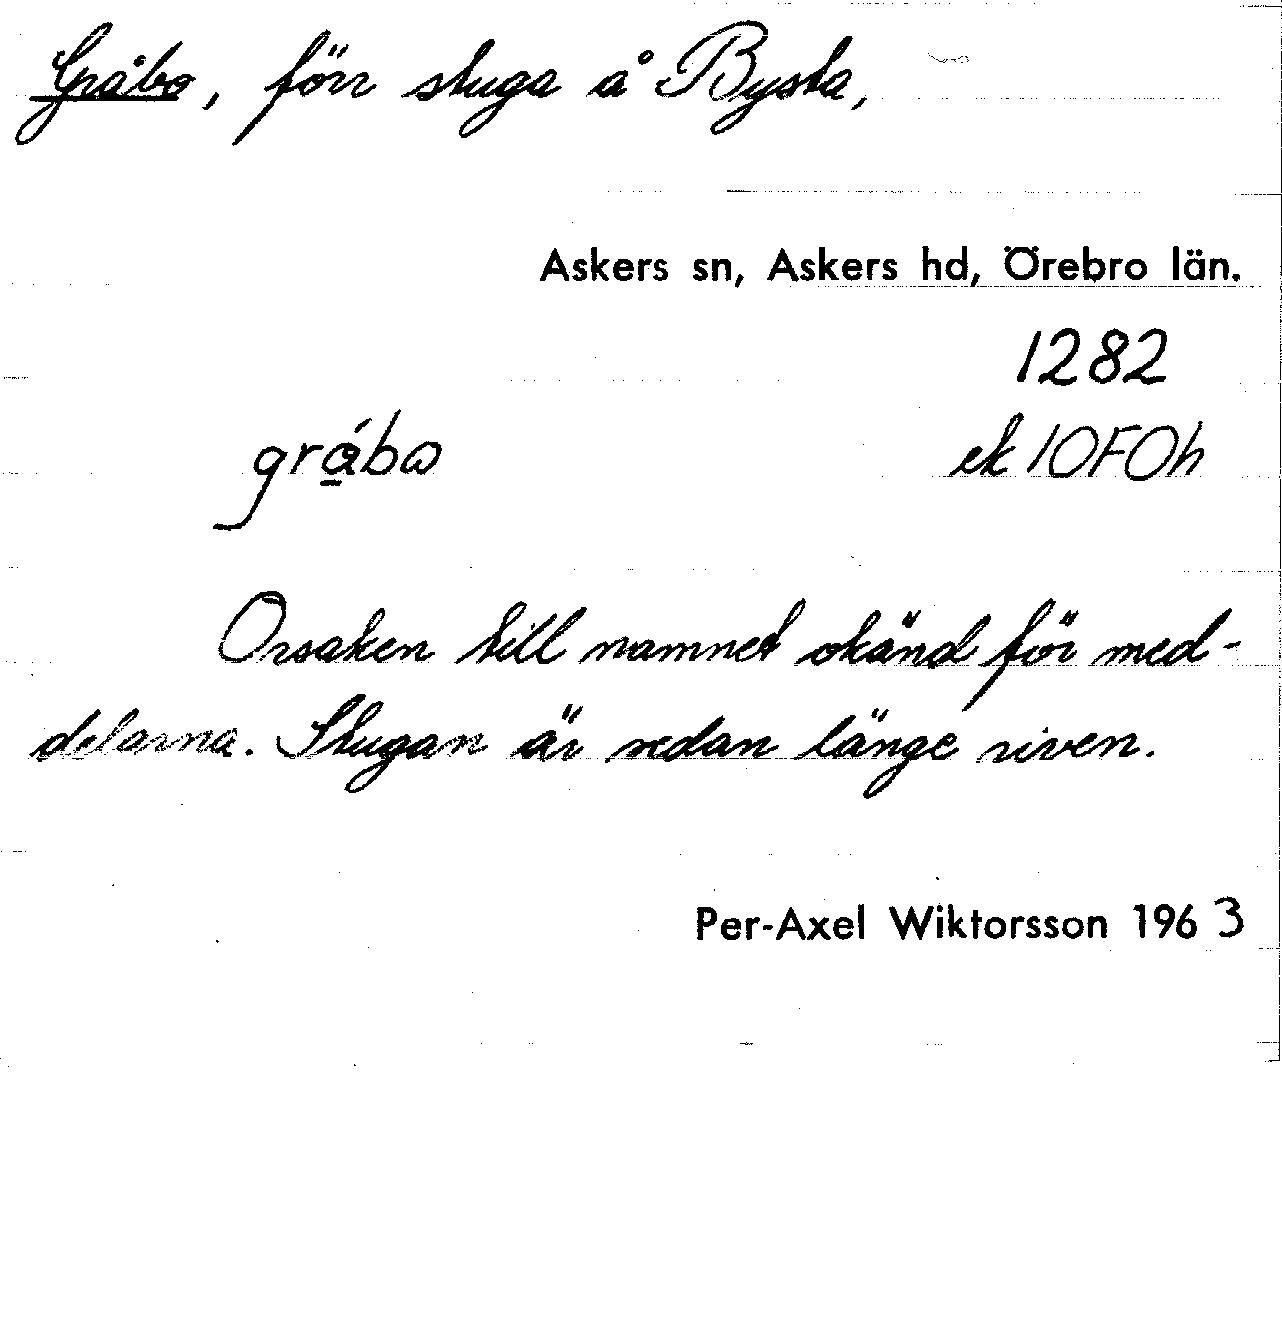 Gråbo, förr stuga å Bysta,
Askers sn, Askers hd, Örebro län.
1282
gråbω
ek 10F0h
Orsaken till namnet okänd för med-
delarna. Stugan är sedan länge riven.
Per-Axel Wiktorsson 1963